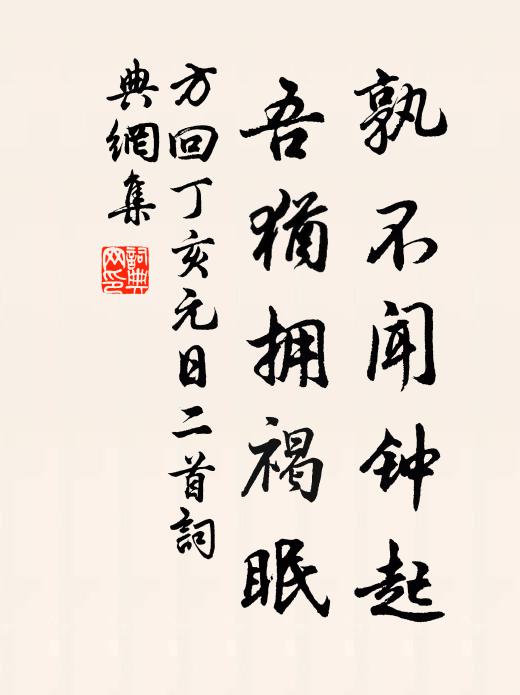 孰不闻钟起
吾犹拥褐眠
方回丁亥元日二首詞
典網集
詞典网印